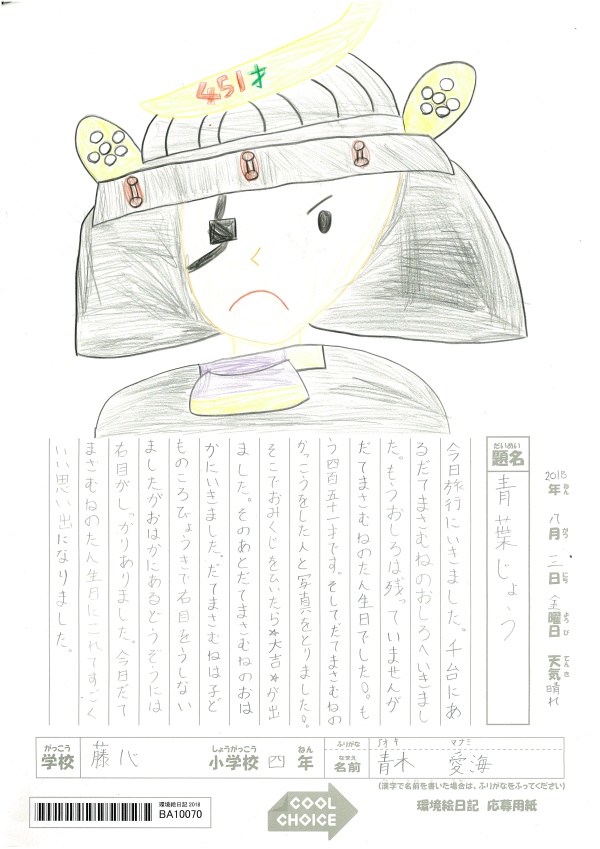 451才
2018年 八月 三日 金曜日 天気 晴れ
ねん がつ にち ようび てんき
だいめい
題名 青葉じょう
今日旅行にいきました。千台にあ
るだてまさむねのおしろへいきまし
た。もうおしろは残っていませんが
だてまさむねのたん生日でした!。も
う四百五十一才です。そしてだてまさむねの
かっこうをした人と写真をとりました!。
そこでおみくじをひいたら★大吉★が出
ました。そのあとだてまさむねのおは
かにいきました。だてまさむねは子ど
ものころびょうきで右目をうしない
ましたがおはかにあるどうぞうには
右目がしっかりありました。今日だて
まさむねのたん生日にこれてすごく
いい思い出になりました。
がっこう しょうがっこう ねん ふりがな アオキ マナミ
学校 藤心 小学校 四年 なまえ 名前 青木 愛海
(漢字で名前を書いた場合は、ふりがなをふってください)
環境絵日記 2018
BA10070
COOL
CHOICE
環境絵日記 応募用紙